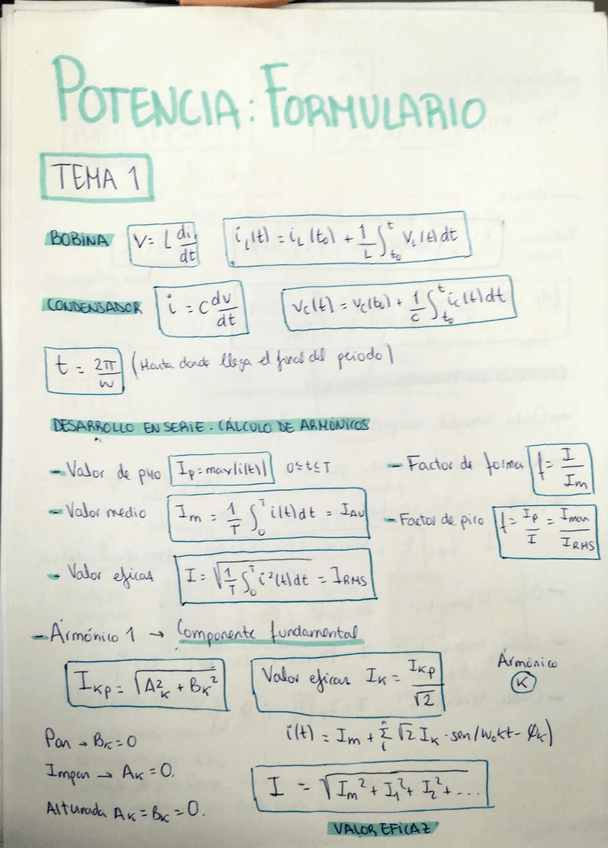 POTENCIA: FORMULARIO
TEMA 1
BOBINA V = L di/dt i_L(t) = i_L(t₀) + 1/L ∫_{t₀}^{t} V_L(t) dt
CONDENSADOR i = C dv/dt V_C(t) = V_C(t₀) + 1/C ∫_{t₀}^{t} i_C(t) dt
t = 2π/w (Hasta donde llega el final del periodo)
DESARROLLO EN SERIE. CÁLCULO DE ARMÓNICOS
- Valor de pico I_p = max|i(t)| 0≤t≤T - Factor de forma f = I/I_m
- Valor medio I_m = 1/T ∫_0^T i(t) dt = I_AV - Factor de pico f = I_p/I = I_max/I_RMS
- Valor eficaz I = √(1/T ∫_0^T i²(t) dt) = I_RMS
- Armónico 1 → Componente fundamental
I_Kp = √(A_K² + B_K²) Valor eficaz I_K = I_Kp/√2 Armónico K
Par → B_K = 0 i(t) = I_m + Σ_1^n √2 I_K · sen(w₀kt - φ_K)
Impar → A_K = 0.
I = √(I_m² + I_1² + I_2² + ...
Alturada A_K = B_K = 0.
VALOR EFICAZ